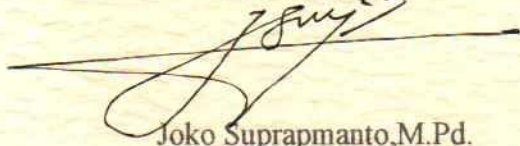 Joko Suprapmanto,M.Pd.